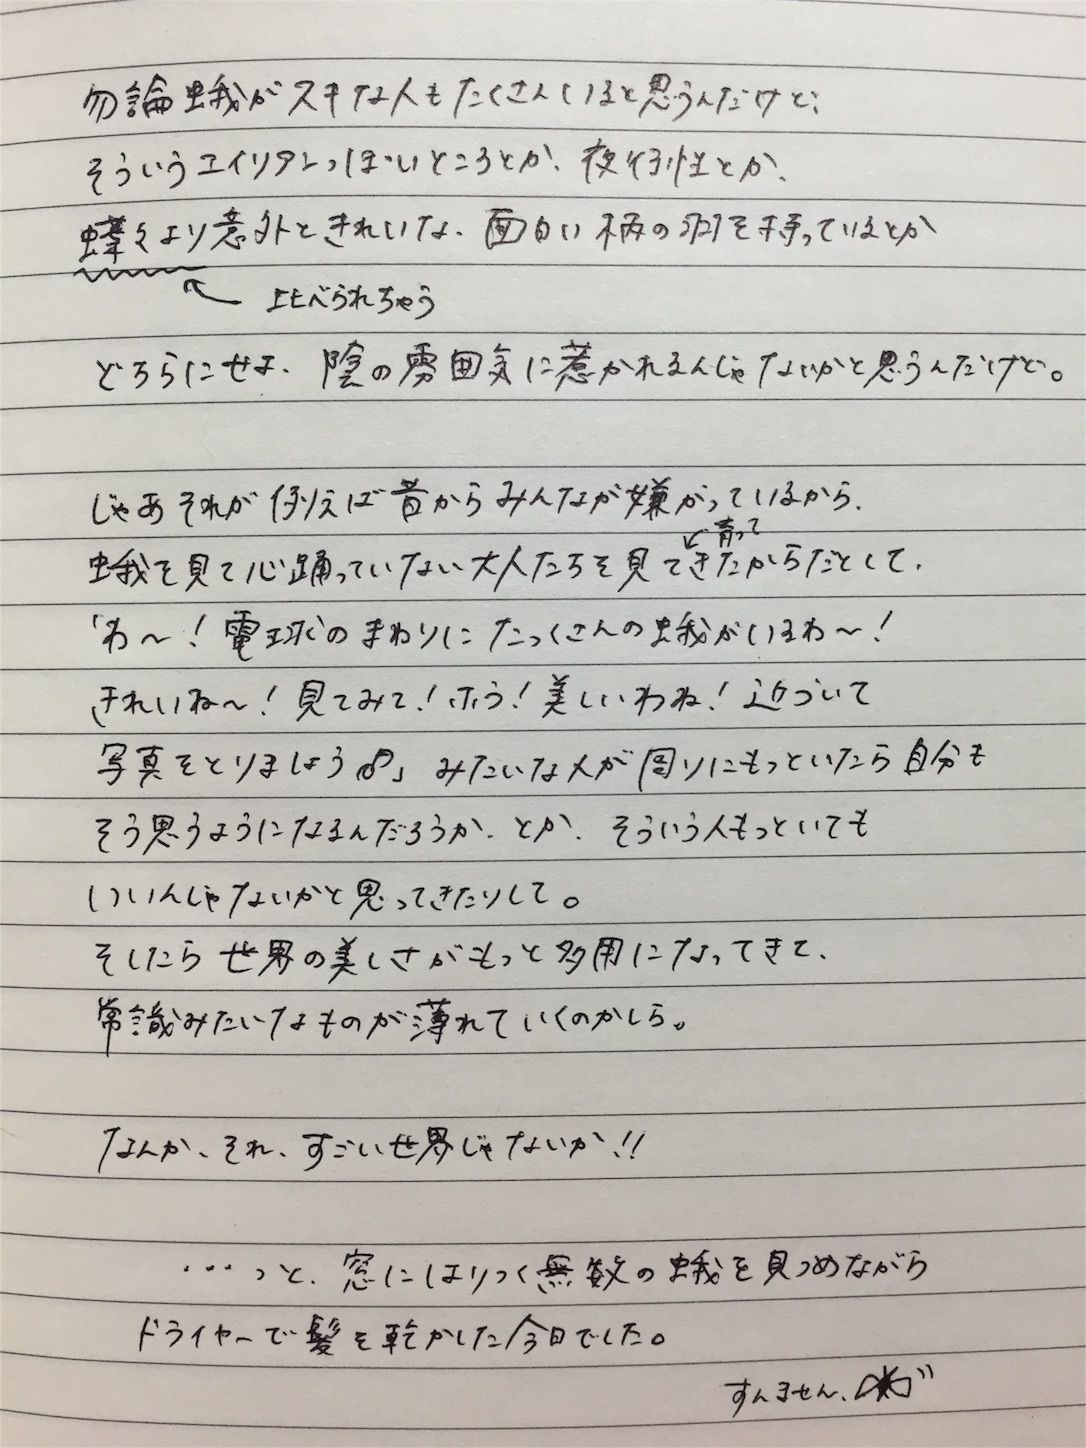 勿論蛾がスキな人もたくさんいると思うんだけど、
そういうエイリアンっぽいところとか、夜行性とか、
蝶々より意外ときれいな、面白い柄の羽を持っているとか
比べられちゃう
どちらにせよ、陰の雰囲気に惹かれるんじゃないかと思うんだけど。
じゃあそれが例えば昔からみんなが嫌がっているから、
育って
蛾を見て心踊っていない大人たちを見てきたからだとして、
「わ〜！電球のまわりにたっくさんの蛾がいるわ〜！
きれいね〜！見てみて！ホラ！美しいわね！近づいて
写真をとりましょう♂」みたいな人が周りにもっといたら自分も
そう思うようになるんだろうか、とか、そういう人もっといても
いいんじゃないかと思ってきたりして。
そしたら世界の美しさがもっと多用になってきて、
常識みたいなものが薄れていくのかしら。
なんか、それ、すごい世界じゃないか!!
…っと、窓にはりつく無数の蛾を見つめながら
ドライヤーで髪を乾かした今日でした。
すんません、